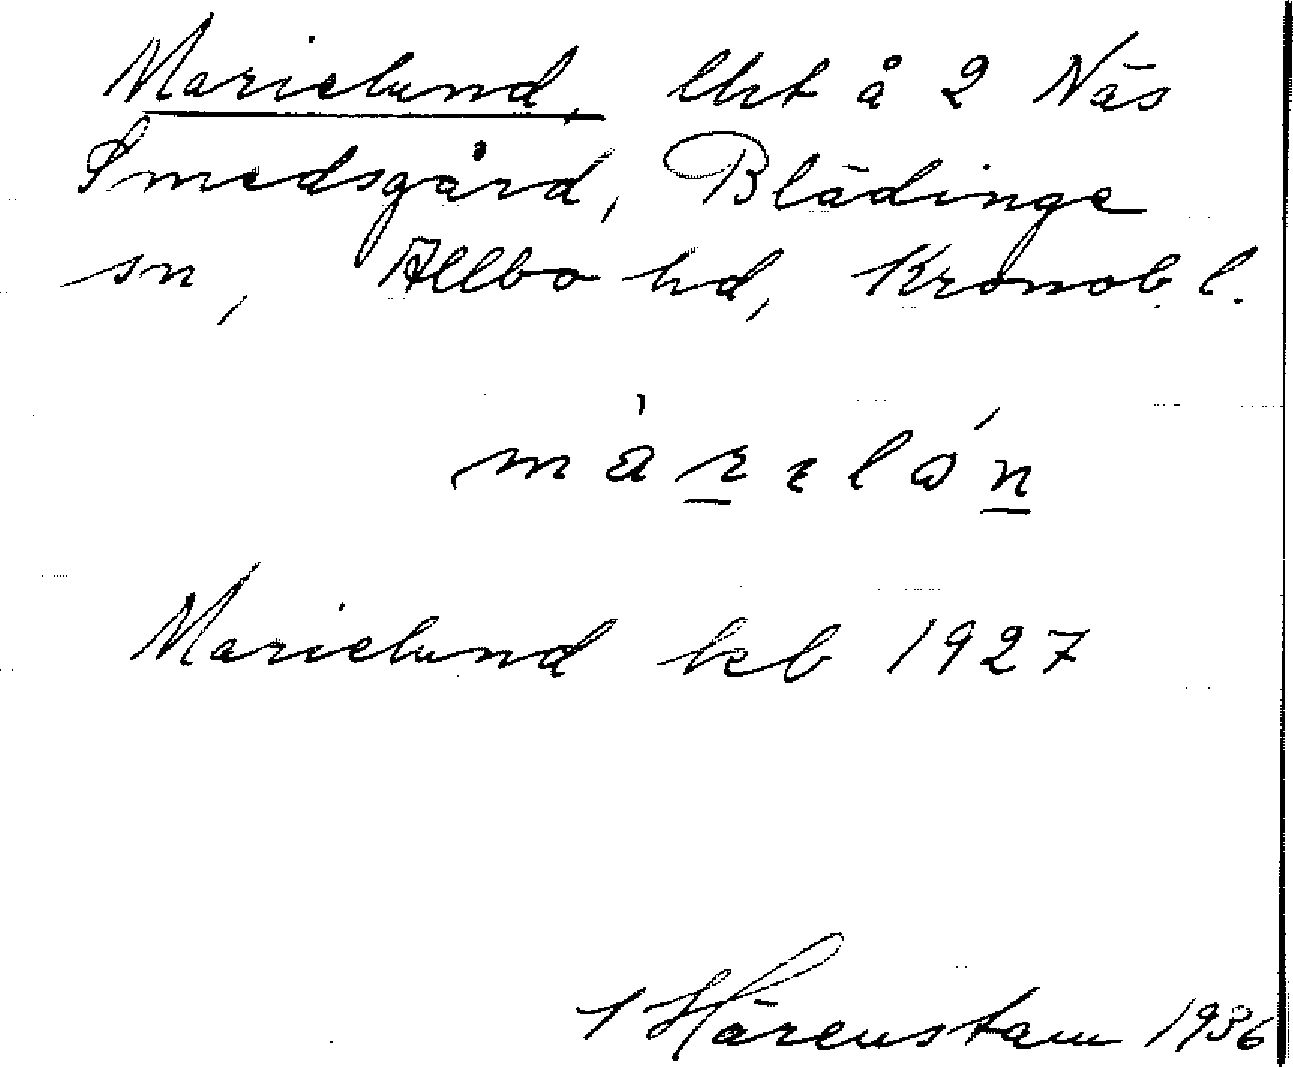 Marielund, lht å 2 Näs
Smedsgård, Blädinge
sn, Allbo hd, Kronob. l.
Marielund kb 1927
Härenstam 1936